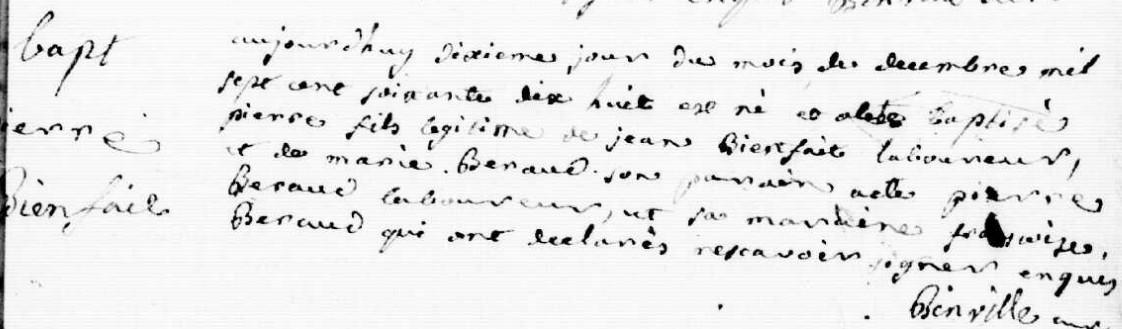 bapt
ierre
Bienfait
aujourdhuy dixieme jour du mois de decembre mil
sept cent soixante dix huit est né et a ete baptisé
pierre fils legitime de jean Bienfait laboureur,
et de marie Beraud. son parain a ete pierre
Beraud laboureur, et sa maraine francoise
Beraud qui ont declarés ne scavoir signer enquis
Binville cure